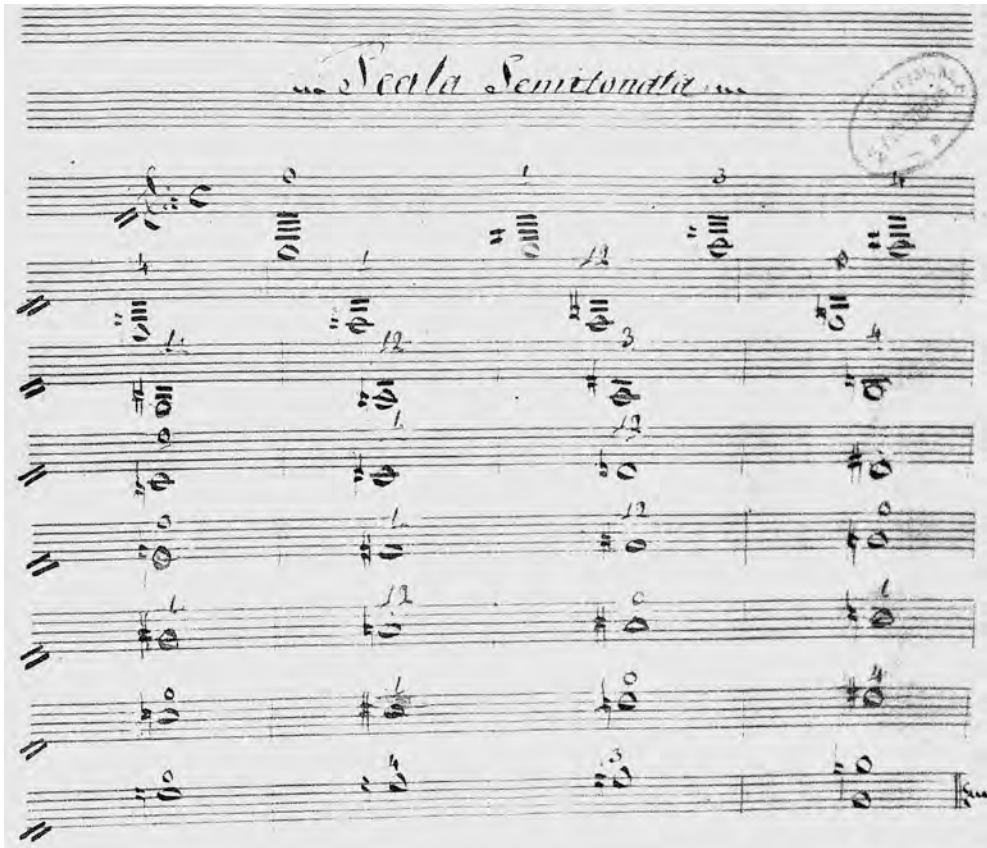 Scala Semitonata
0 1 3 4
4 1 12
1 12 3 4
0 1 12
0 1 12 0
1 12 0 1
0 1 0 4
0 4 3